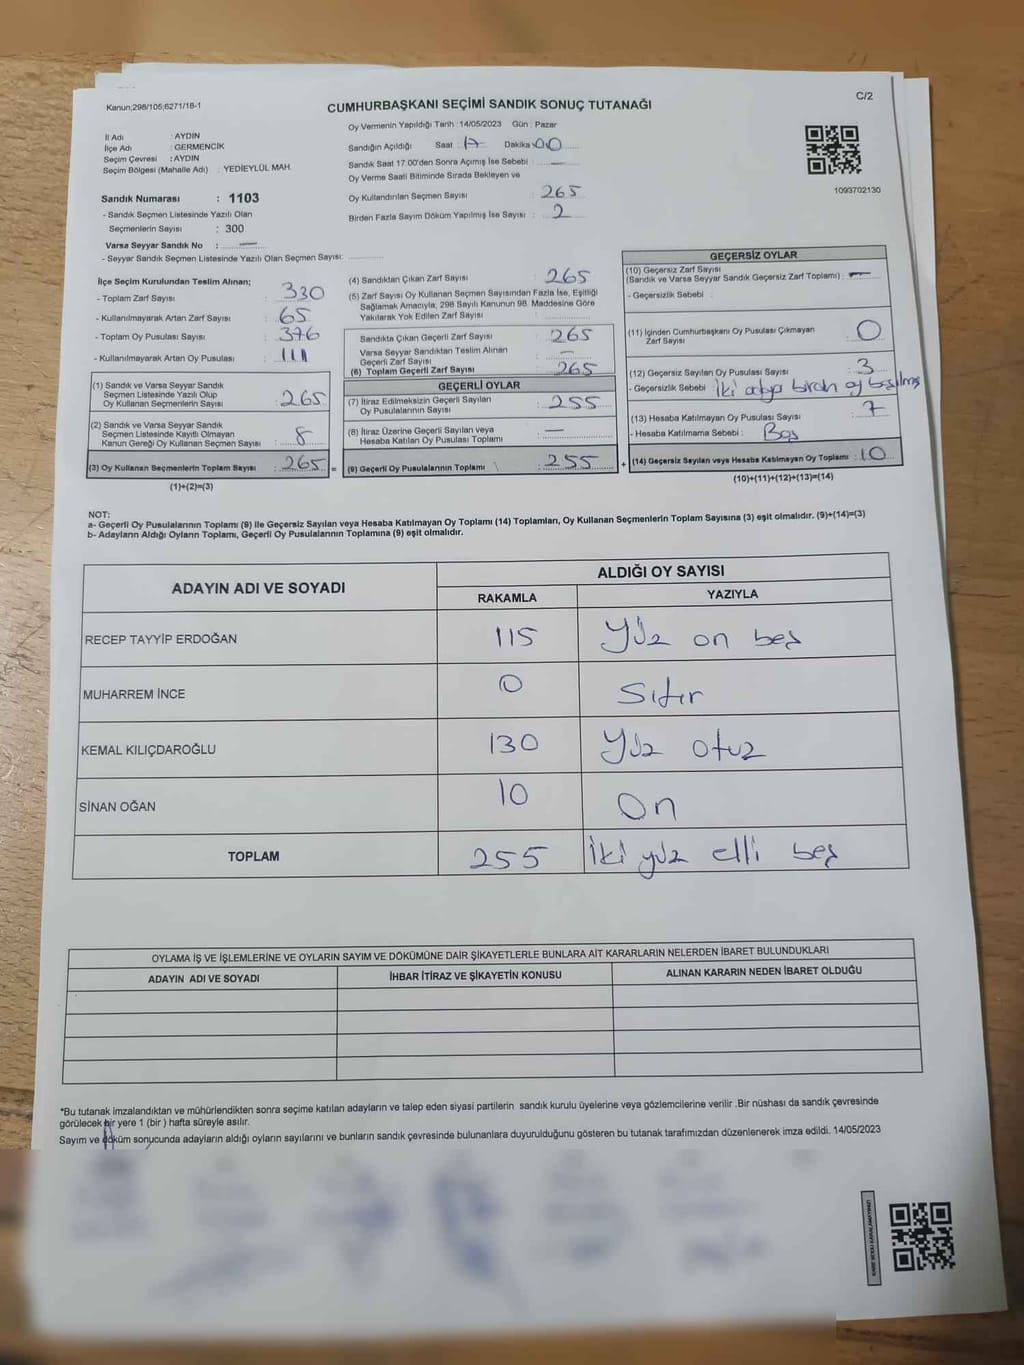 Kanun;298/105;6271/18-1
CUMHURBAŞKANI SEÇİMİ SANDIK SONUÇ TUTANAĞI
C/2
İl Adı : AYDIN
İlçe Adı : GERMENCİK
Seçim Çevresi : AYDIN
Seçim Bölgesi (Mahalle Adı) : YEDİEYLÜL MAH.
Sandık Numarası : 1103
- Sandık Seçmen Listesinde Yazılı Olan
Seçmenlerin Sayısı : 300
Varsa Seyyar Sandık No : —
- Seyyar Sandık Seçmen Listesinde Yazılı Olan Seçmen Sayısı:
Oy Vermenin Yapıldığı Tarih :14/05/2023 Gün : Pazar
Sandığın Açıldığı Saat : 17 Dakika : 00
Sandık Saat 17:00'den Sonra Açımış İse Sebebi : —
Oy Verme Saati Bitiminde Sırada Bekleyen ve
Oy Kullandırılan Seçmen Sayısı : 265
Birden Fazla Sayım Döküm Yapılmış İse Sayısı : 2
1093702130
İlçe Seçim Kurulundan Teslim Alınan;
- Toplam Zarf Sayısı : 330
- Kullanılmayarak Artan Zarf Sayısı : 65
- Toplam Oy Pusulası Sayısı : 376
- Kullanılmayarak Artan Oy Pusulası : 111
(1) Sandık ve Varsa Seyyar Sandık
Seçmen Listesinde Yazılı Olup
Oy Kullanan Seçmenlerin Sayısı : 265
(2) Sandık ve Varsa Seyyar Sandık
Seçmen Listesinde Kayıtlı Olmayan
Kanun Gereği Oy Kullanan Seçmen Sayısı : 8
(3) Oy Kullanan Seçmenlerin Toplam Sayısı : 265 =
(1)+(2)=(3)
(4) Sandıktan Çıkan Zarf Sayısı : 265
(5) Zarf Sayısı Oy Kullanan Seçmen Sayısından Fazla İse, Eşitliği
Sağlamak Amacıyla, 298 Sayılı Kanunun 98. Maddesine Göre
Yakılarak Yok Edilen Zarf Sayısı :
Sandıkta Çıkan Geçerli Zarf Sayısı : 265
Varsa Seyyar Sandıktan Teslim Alınan
Geçerli Zarf Sayısı : —
(6) Toplam Geçerli Zarf Sayısı : 265
GEÇERLİ OYLAR
(7) İtiraz Edilmeksizin Geçerli Sayılan
Oy Pusulalarının Sayısı : 255
(8) İtiraz Üzerine Geçerli Sayılan veya
Hesaba Katılan Oy Pusulası Toplamı : —
(9) Geçerli Oy Pusulalarının Toplamı : 255 +
GEÇERSİZ OYLAR
(10) Geçersiz Zarf Sayısı
(Sandık ve Varsa Seyyar Sandık Geçersiz Zarf Toplamı) : —
- Geçersizlik Sebebi :
(11) İçinden Cumhurbaşkanı Oy Pusulası Çıkmayan
Zarf Sayısı : 0
(12) Geçersiz Sayılan Oy Pusulası Sayısı : 3
- Geçersizlik Sebebi : iki adya birden oy basılmış
(13) Hesaba Katılmayan Oy Pusulası Sayısı : 7
- Hesaba Katılmama Sebebi : Boş
(14) Geçersiz Sayılan veya Hesaba Katılmayan Oy Toplamı : 10
(10)+(11)+(12)+(13)=(14)
NOT:
a- Geçerli Oy Pusulalarının Toplamı (9) ile Geçersiz Sayılan veya Hesaba Katılmayan Oy Toplamı (14) Toplamları, Oy Kullanan Seçmenlerin Toplam Sayısına (3) eşit olmalıdır. (9)+(14)=(3)
b- Adayların Aldığı Oyların Toplamı, Geçerli Oy Pusulalarının Toplamına (9) eşit olmalıdır.
ADAYIN ADI VE SOYADI
ALDIĞI OY SAYISI
RAKAMLA YAZIYLA
RECEP TAYYİP ERDOĞAN 115 Yüz on beş
MUHARREM İNCE 0 Sıfır
KEMAL KILIÇDAROĞLU 130 Yüz otuz
SİNAN OĞAN 10 On
TOPLAM 255 İki yüz elli beş
OYLAMA İŞ VE İŞLEMLERİNE VE OYLARIN SAYIM VE DÖKÜMÜNE DAİR ŞİKAYETLERLE BUNLARA AİT KARARLARIN NELERDEN İBARET BULUNDUKLARI
ADAYIN ADI VE SOYADI İHBAR İTİRAZ VE ŞİKAYETİN KONUSU ALINAN KARARIN NEDEN İBARET OLDUĞU
*Bu tutanak imzalandıktan ve mühürlendikten sonra seçime katılan adayların ve talep eden siyasi partilerin sandık kurulu üyelerine veya gözlemcilerine verilir .Bir nüshası da sandık çevresinde
görülecek bir yere 1 (bir ) hafta süreyle asılır.
Sayım ve döküm sonucunda adayların aldığı oyların sayılarını ve bunların sandık çevresinde bulunanlara duyurulduğunu gösteren bu tutanak tarafımızdan düzenlenerek imza edildi. 14/05/2023